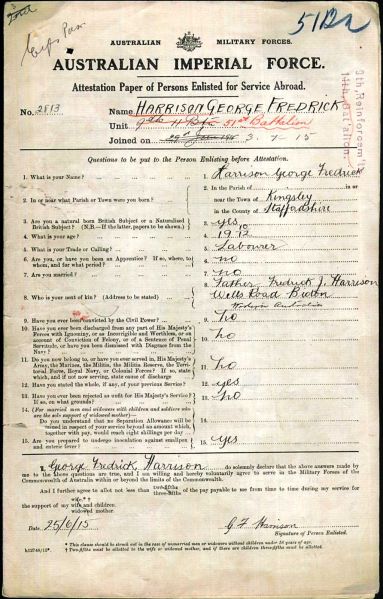 5112
AUSTRALIAN MILITARY FORCES.
AUSTRALIAN IMPERIAL FORCE.
Attestation Paper of Persons Enlisted for Service Abroad.
No. 2813 Name HARRISON GEORGE FREDRICK
Unit Battalion
Joined on 3. 7. 15
9th Reinforcement
11th Battalion
Questions to be put to the Person Enlisting before Attestation.
1. What is your Name? 1. Harrison George Fredrick
2. In or near what Parish or Town were you born? 2. In the Parish of in or
near the Town of Kingsley
in the County of Staffordshire
3. Are you a natural born British Subject or a Naturalised
British Subject? (N.B.—If the latter, papers to be shown). 3. yes
4. What is your age? 4. 19
5. What is your Trade or Calling? 5. Labourer
6. Are you, or have you been an Apprentice? If so, where,
to whom, and for what period? 6. no
7. Are you married? 7. no
8. Who is your next of kin? (Address to be stated) 8. Father, Fredrick J. Harrison
Wells Road
Western Australia
9. Have you ever been convicted by the Civil Power? 9. no
10. Have you ever been discharged from any part of His Majesty's
Forces with Ignominy, or as Incorrigible and Worthless, or on
account of Conviction of Felony, or of a Sentence of Penal
Servitude, or have you been dismissed with Disgrace from the
Navy? 10. no
11. Do you now belong to, or have you ever served in, His Majesty's
Army, the Marines, the Militia, the Militia Reserve, the Terri-
torial Force, Royal Navy, or Colonial Forces? If so, state
which, and if not now serving, state cause of discharge 11. no
12. Have you stated the whole, if any, of your previous Service? 12. yes
13. Have you ever been rejected as unfit for His Majesty's Service?
If so, on what grounds? 13. no
14. (For married men and widowers with children and soldiers who
are the sole support of widowed mother)—
Do you understand that no Separation Allowance will be
issued in respect of your service beyond an amount which,
together with pay, would reach eight shillings per day? 14.
15. Are you prepared to undergo inoculation against smallpox
and enteric fever? 15. yes
I, George Fredrick Harrison do solemnly declare that the above answers made by
me to the above questions are true, and I am willing and hereby voluntarily agree to serve in the Military Forces of the
Commonwealth of Australia within or beyond the limits of the Commonwealth.
And I further agree to allot not less than two-fifths three-fifths of the pay payable to me from time to time during my service for
the support of my wife and children. widowed mother.
Date 25/6/15 G F Harrison
Signature of Person Enlisted.
* This clause should be struck out in the case of unmarried men or widowers without children under 18 years of age.
† Two-fifths must be allotted to the wife or widowed mother, and if there are children three-fifths must be allotted.